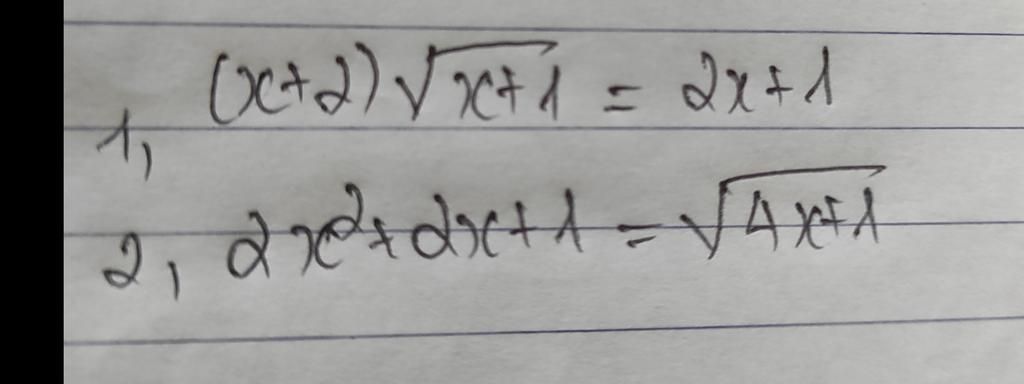 1, (x+2)√(x+1) = 2x+1
2, 2x²+2x+1 = √(4x+1)